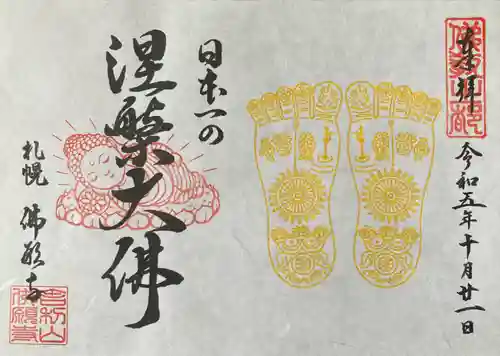 奉拝
令和五年十月廿一日
日本一の
涅槃大佛
札幌 佛願寺